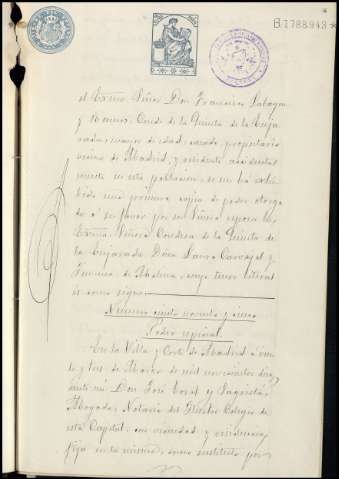 B.1.788.943 *
el Excmo Señor Don Francisco
y Conde de la Quinta de la Enja-
rada, mayor de edad, casado, propietario
vecino de Madrid, y residente accidental-
mente en esta población, se me ha exhi-
bido una primera copia de poder otorga-
do á su favor por su Señora esposa la
Excma Señora Condesa de la Quinta de
la Enjarada Doña Laura Carvajal y
Jimenez de cuyo tenor literal
es como sigue
Numero ciento noventa y cinco
Poder especial
En la Villa y Corte de Madrid á vein-
te y tres de de mil novecientos
ante mi Don José Toral y Sagristá
Abogado, Notario del Ilustre Colegio de
esta Capital, con vecindad y residencia
fija en la misma, como sustituto por